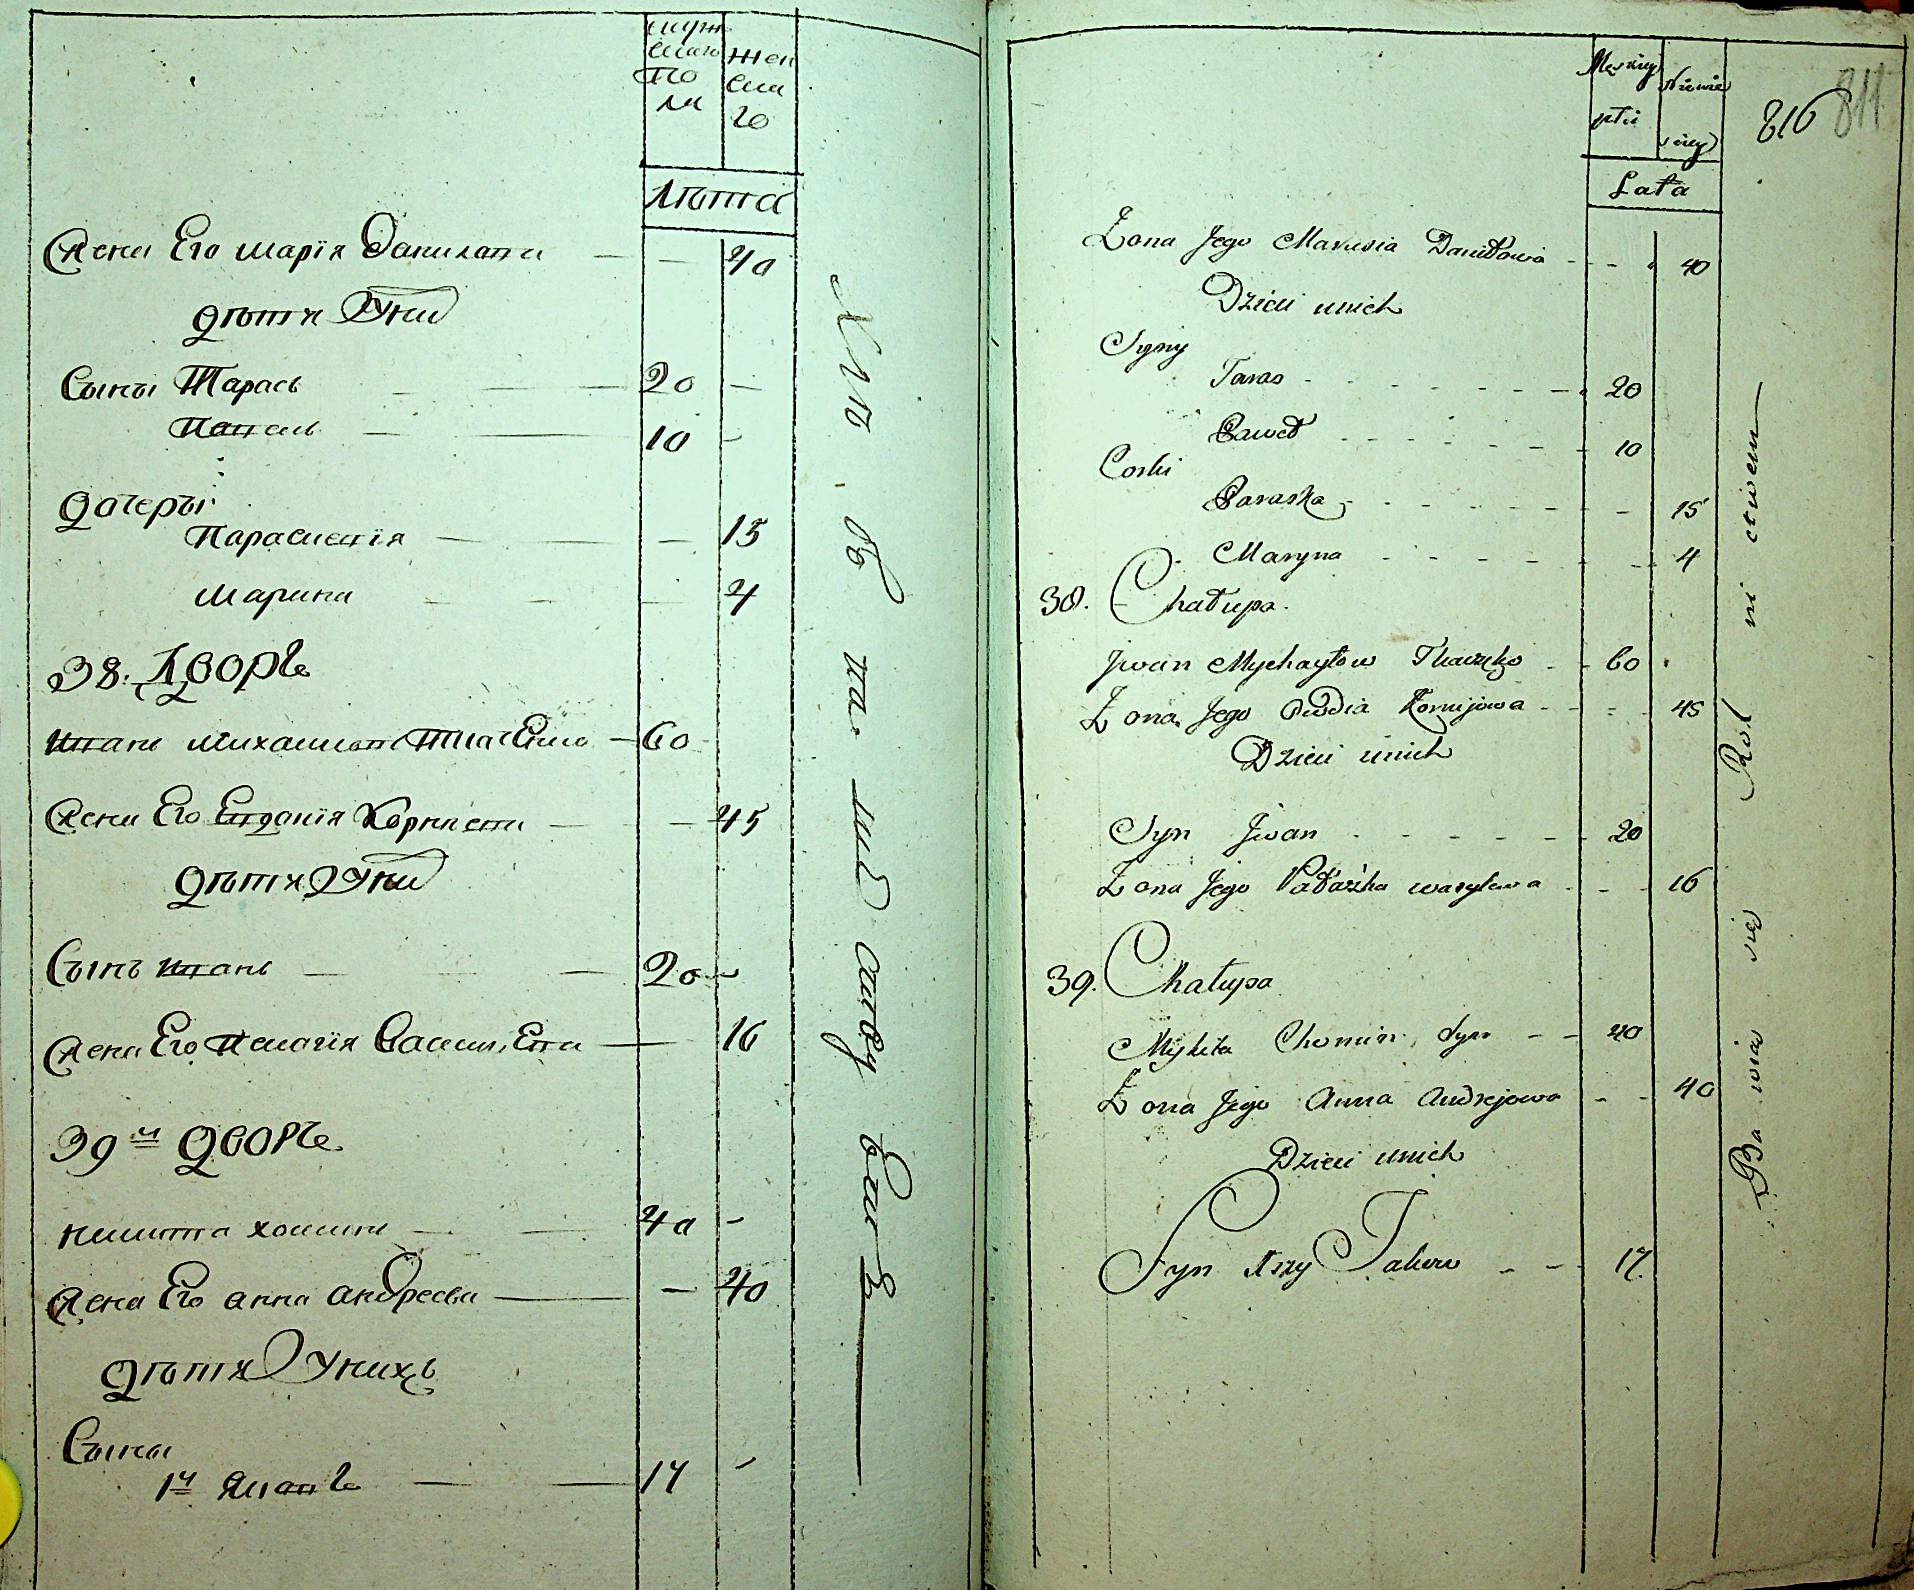 мужескаго пола
женскаго
Лѣта
Жена Его Марія Данилова — — 40
дѣти У ни
Сыны Тарасъ — 20 —
Павелъ — 10 —
дочеры
Парасцевія — — 15
Марина — — 4
38. Дворъ
Иванъ Михайловъ Ткаченко — 60
Жена Его Евдокія Корнѣева — — 45
дѣти У ни
Сынъ Иванъ — 20 —
Жена Его Пелагія Василіева — 16
39й дворъ
Никита Хоминъ — 40 —
Жена Его Анна Андреева — — 40
дѣти У нихъ
Сыны
1й Яковъ — 17 —
Męskiey płci
Niewieściey
816
811
Lata
Żona Jego Marusia Daniłowa - - 40
Dzieci u nich
Syny
Taras - - - 20
Paweł - - - 10
Corki
Paraska - - - 15
Maryna - - - 4
38. Chałupa.
Jwan Mychayłow Tkaczko - - 60
Żona Jego Owdia Kornijowa - - - 45
Dzieci u nich
Syn Jwan - - - 20
Żona Jego Pałażka wasylowa - - 16
39. Chałupa
Mykita Chomin Syn - - 40
Żona Jego Anna Andrejowa - - 40
Dzieci u nich
Syn 1szy Jakow - - 17.
Bawia się Rolnictwem